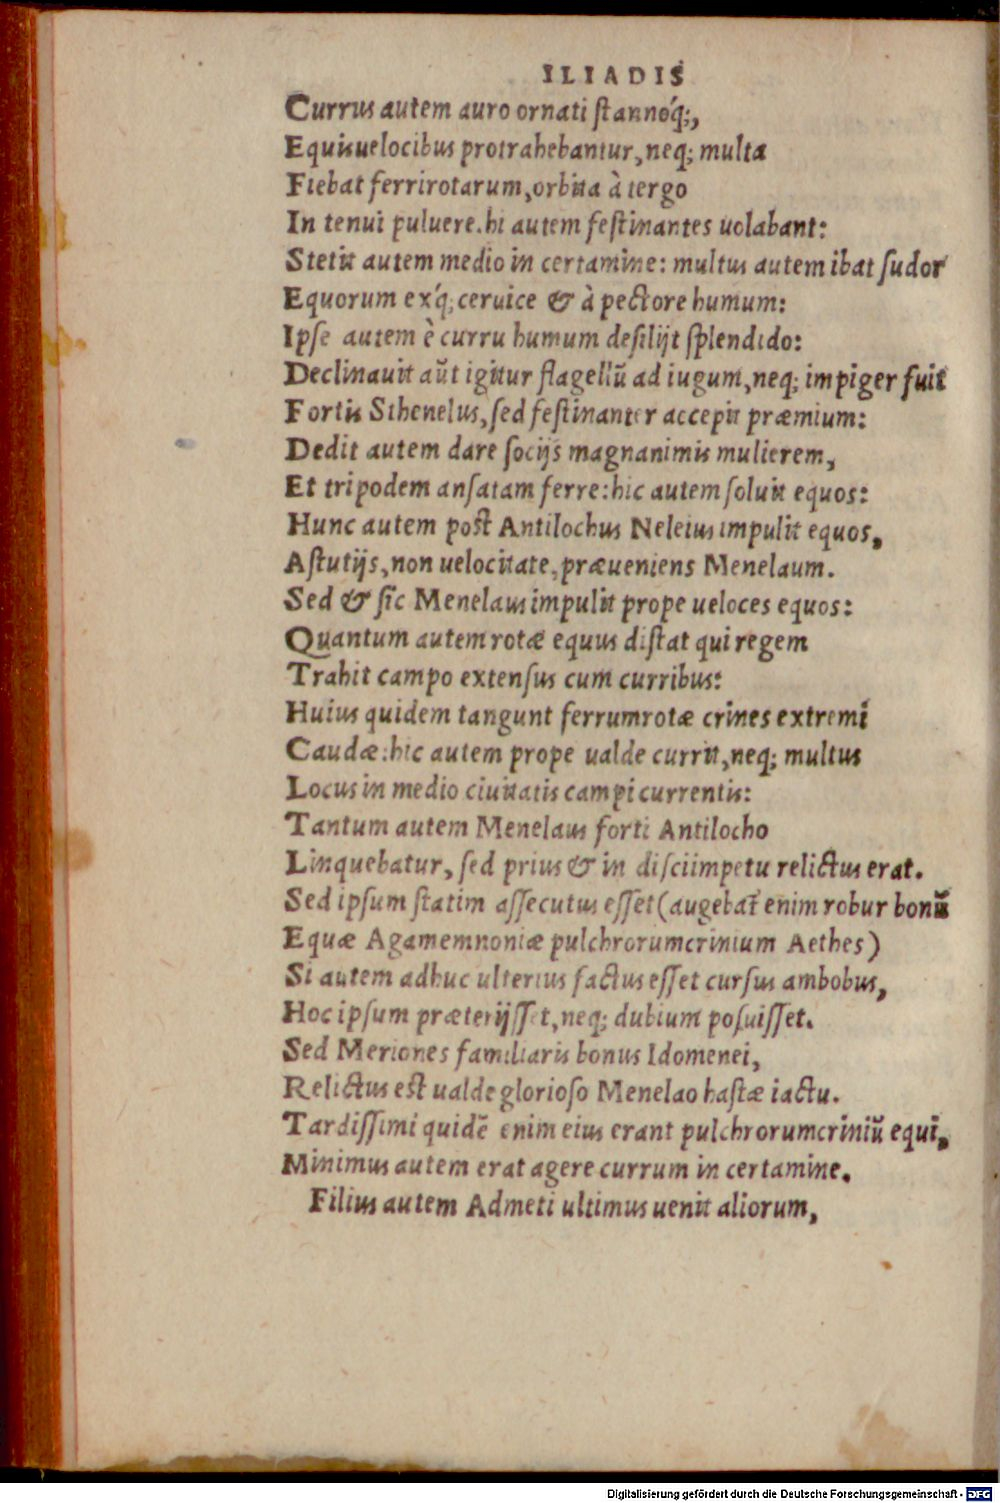 ILIADIS
Currus autem auro ornati stannóq;,
Equis uelocibus protrahebantur, neq; multa
Fiebat ferrirotarum, orbita à tergo
In tenui puluere. hi autem festinantes uolabant:
Stetit autem medio in certamine: multus autem ibat sudor
Equorum exq́; ceruice & à pectore humum:
Ipse autem è curru humum desilijt splendido:
Declinauit aūt igitur flagellū ad iugum, neq; impiger fuit
Fortis Sthenelus, sed festinanter accepit præmium:
Dedit autem dare socijs magnanimis mulierem,
Et tripodem ansatam ferre: hic autem soluit equos:
Hunc autem post Antilochus Neleius impulit equos,
Astutijs, non uelocitate, præueniens Menelaum.
Sed & sic Menelaus impulit prope ueloces equos:
Quantum autem rotæ equus distat qui regem
Trahit campo extensus cum curribus:
Huius quidem tangunt ferrumrotæ crines extremi
Caudæ: hic autem prope ualde currit, neq; multus
Locus in medio ciuitatis campi currentis:
Tantum autem Menelaus forti Antilocho
Linquebatur, sed prius & in disci impetu relictus erat.
Sed ipsum statim assecutus esset (augebat̄ enim robur bonū
Equæ Agamemnoniæ pulchrorumcrinium Aethes)
Si autem adhuc ulterius factus esset cursus ambobus,
Hoc ipsum præterijsset, neq; dubium posuisset.
Sed Meriones familiaris bonus Idomenei,
Relictus est ualde glorioso Menelao hastæ iactu.
Tardissimi quidē enim eius erant pulchrorumcriniū equi,
Minimus autem erat agere currum in certamine.
Filius autem Admeti ultimus uenit aliorum,
Digitalisierung gefördert durch die Deutsche Forschungsgemeinschaft - DFG